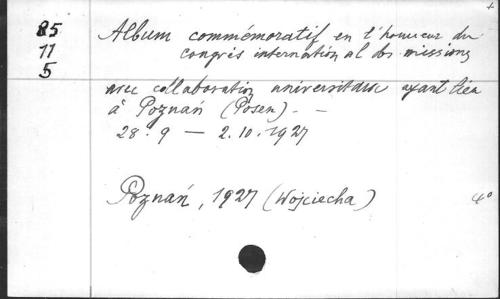 85
11
5
Album commémoratif en l'honneur du
congrès international des missions
avec collaboration universitaire ayant lieu
à Poznań (Posen). -
28.9 — 2.10.1927
Poznań, 1927 (Wojciecha)
4°